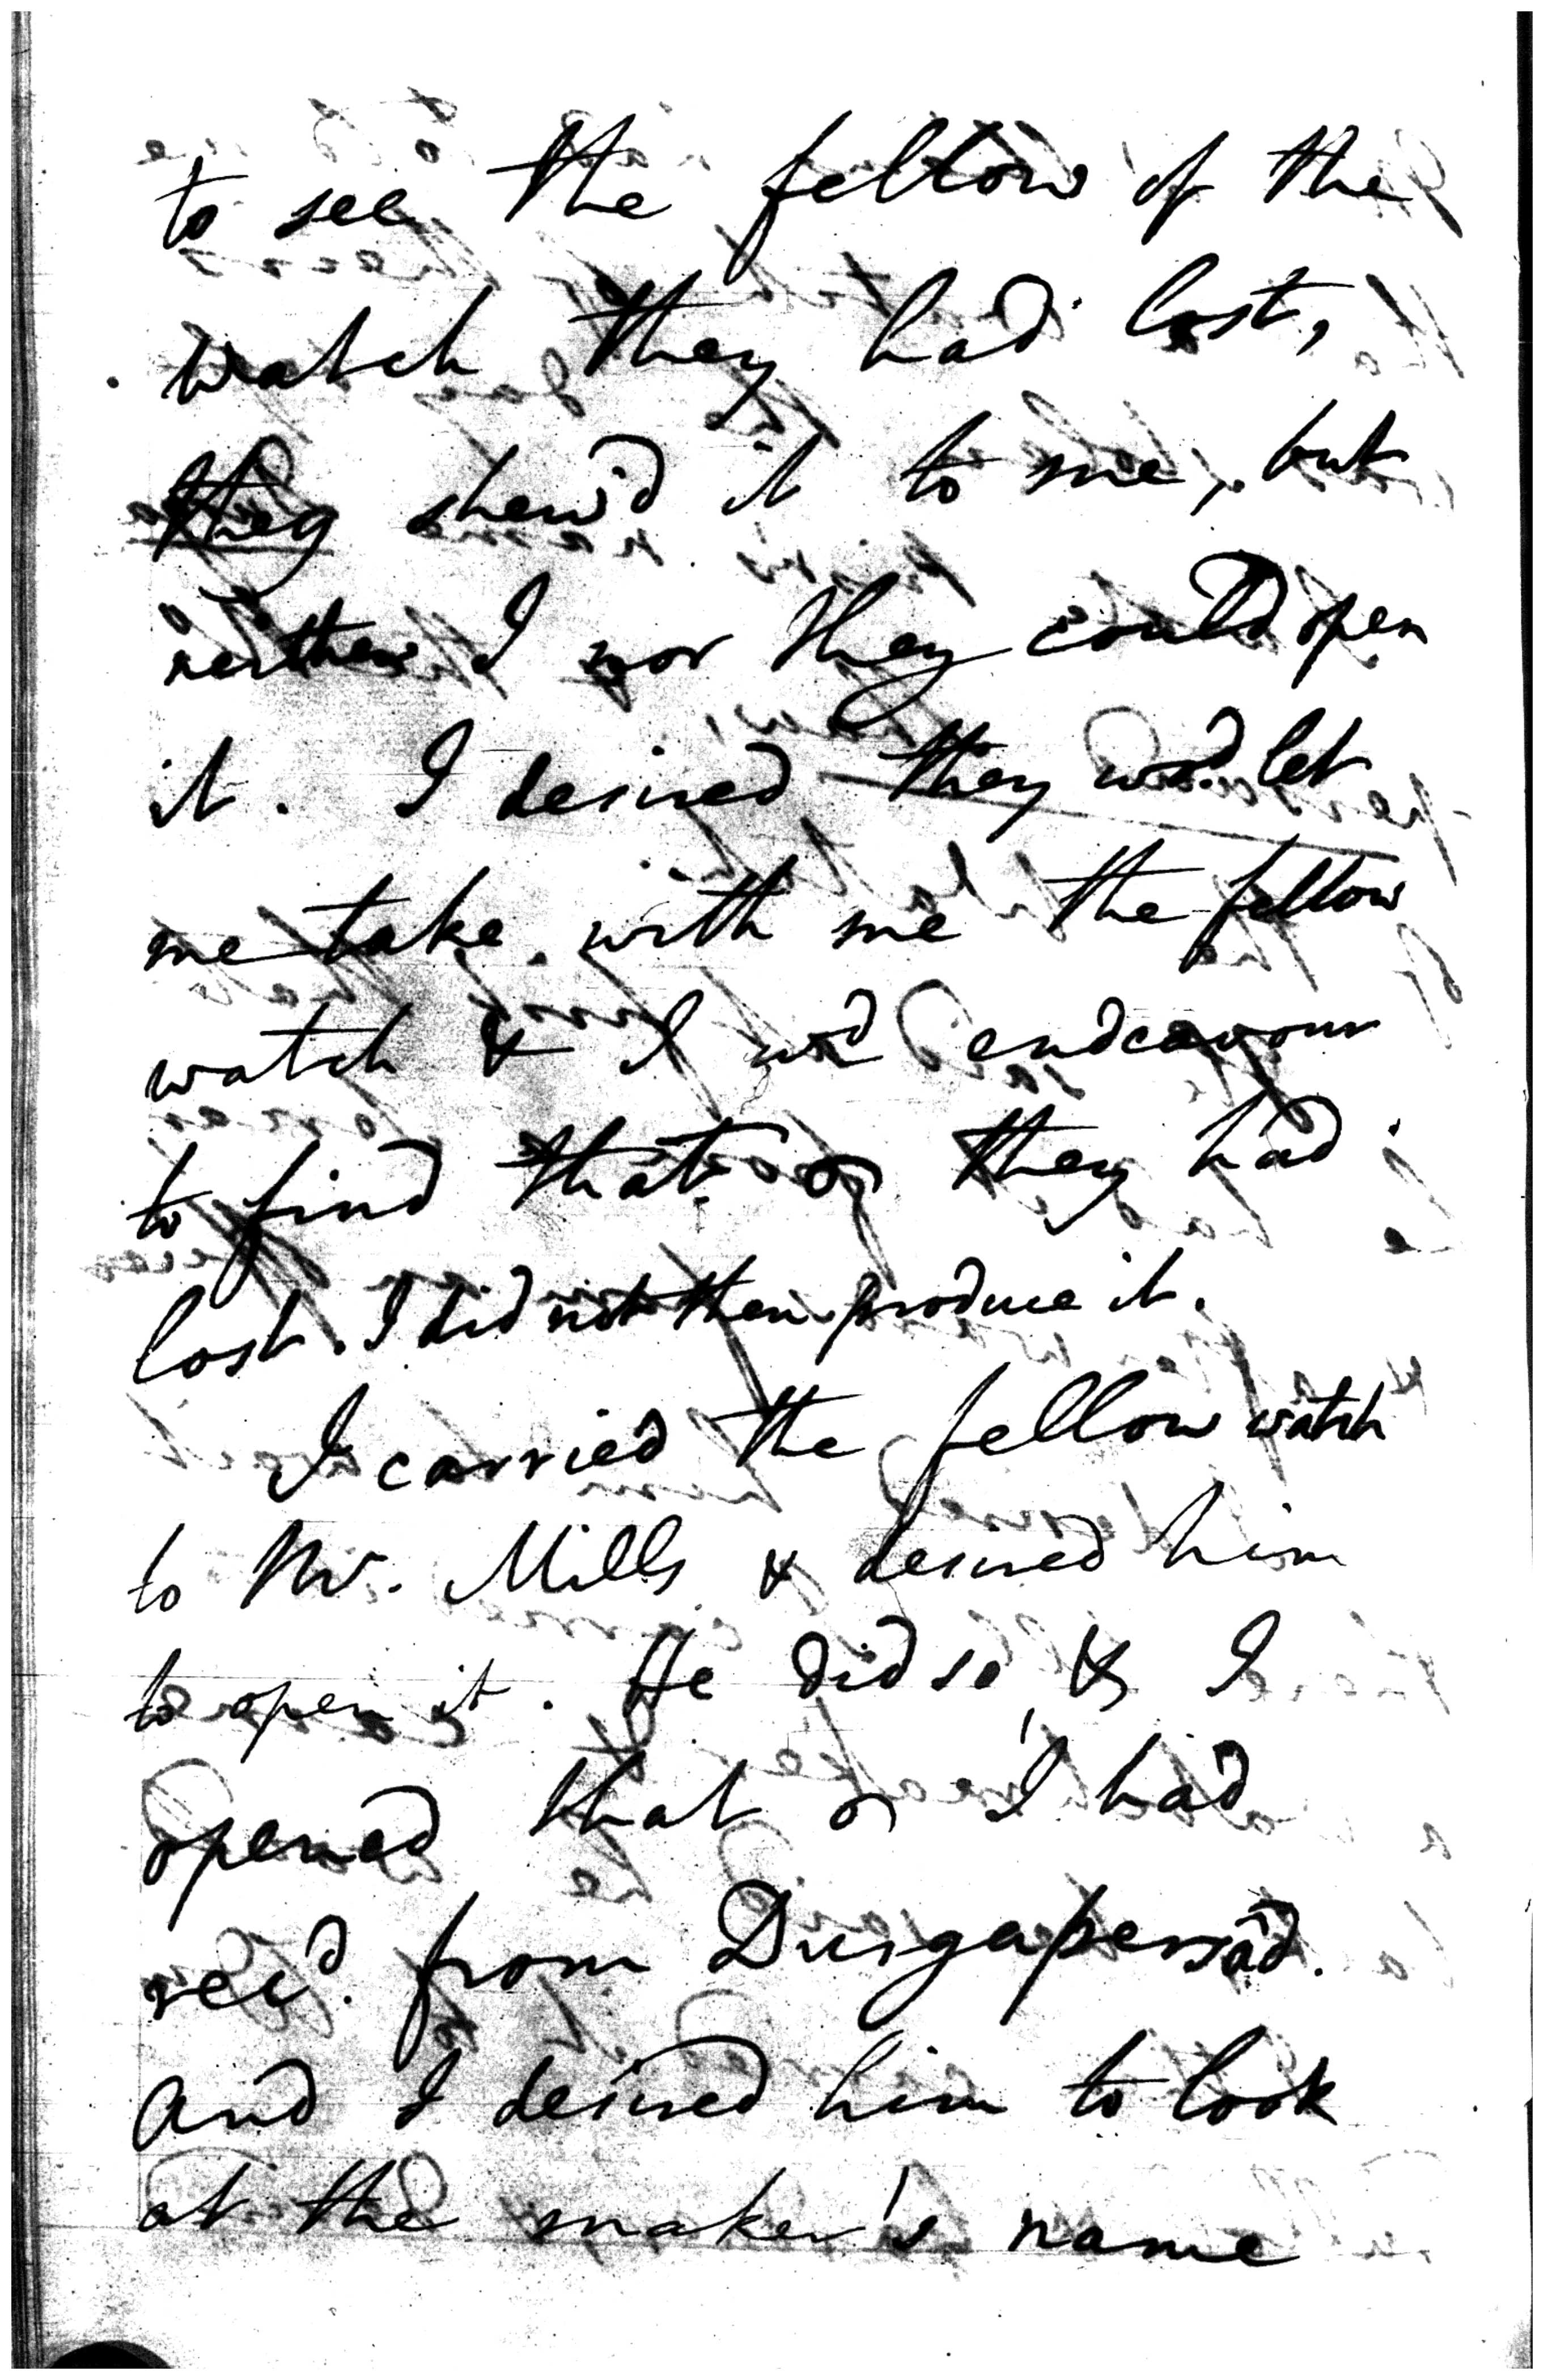 to see the fellow of the
watch they had lost,
they shew'd it to me, but
neither I nor they could open
it. I desired they wod let
me take with me the fellow
watch & I wd endeavour
to find that they had
lost. I did not then produce it.
I carried the fellow watch
to Mr. Mills & desired him
to open it. He did so, & I
opened that I had
recd. from Durgapersâd.
And I desired him to look
at the maker's name